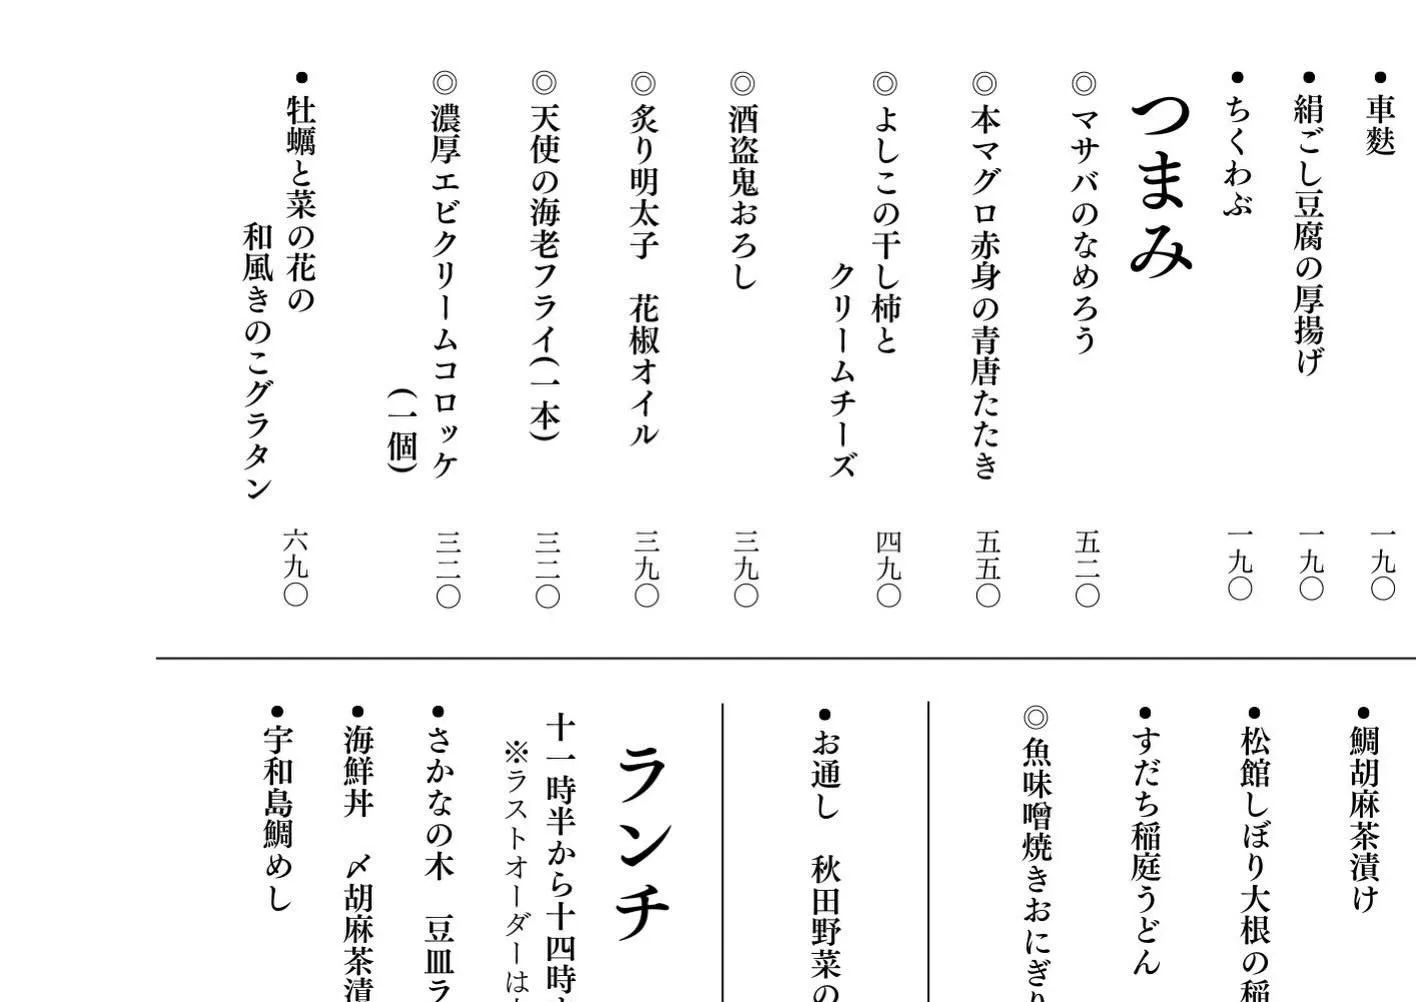 ●車麩 一九〇
●絹ごし豆腐の厚揚げ 一九〇
●ちくわぶ 一九〇
つまみ
◎マサバのなめろう 五二〇
◎本マグロ赤身の青唐たたき 五五〇
◎よしこの干し柿と 四九〇
クリームチーズ
◎酒盗鬼おろし 三九〇
◎炙り明太子　花椒オイル 三九〇
◎天使の海老フライ(一本) 三二〇
◎濃厚エビクリームコロッケ 三二〇
(一個)
●牡蠣と菜の花の 六九〇
和風きのこグラタン
●鯛胡麻茶漬け
●松館しぼり大根の稲
●すだち稲庭うどん
◎魚味噌焼きおにぎり
●お通し　秋田野菜の
ランチ
十一時半から十四時
※ラストオーダーは
●さかなの木　豆皿ラ
●海鮮丼　〆胡麻茶漬
●宇和島鯛めし